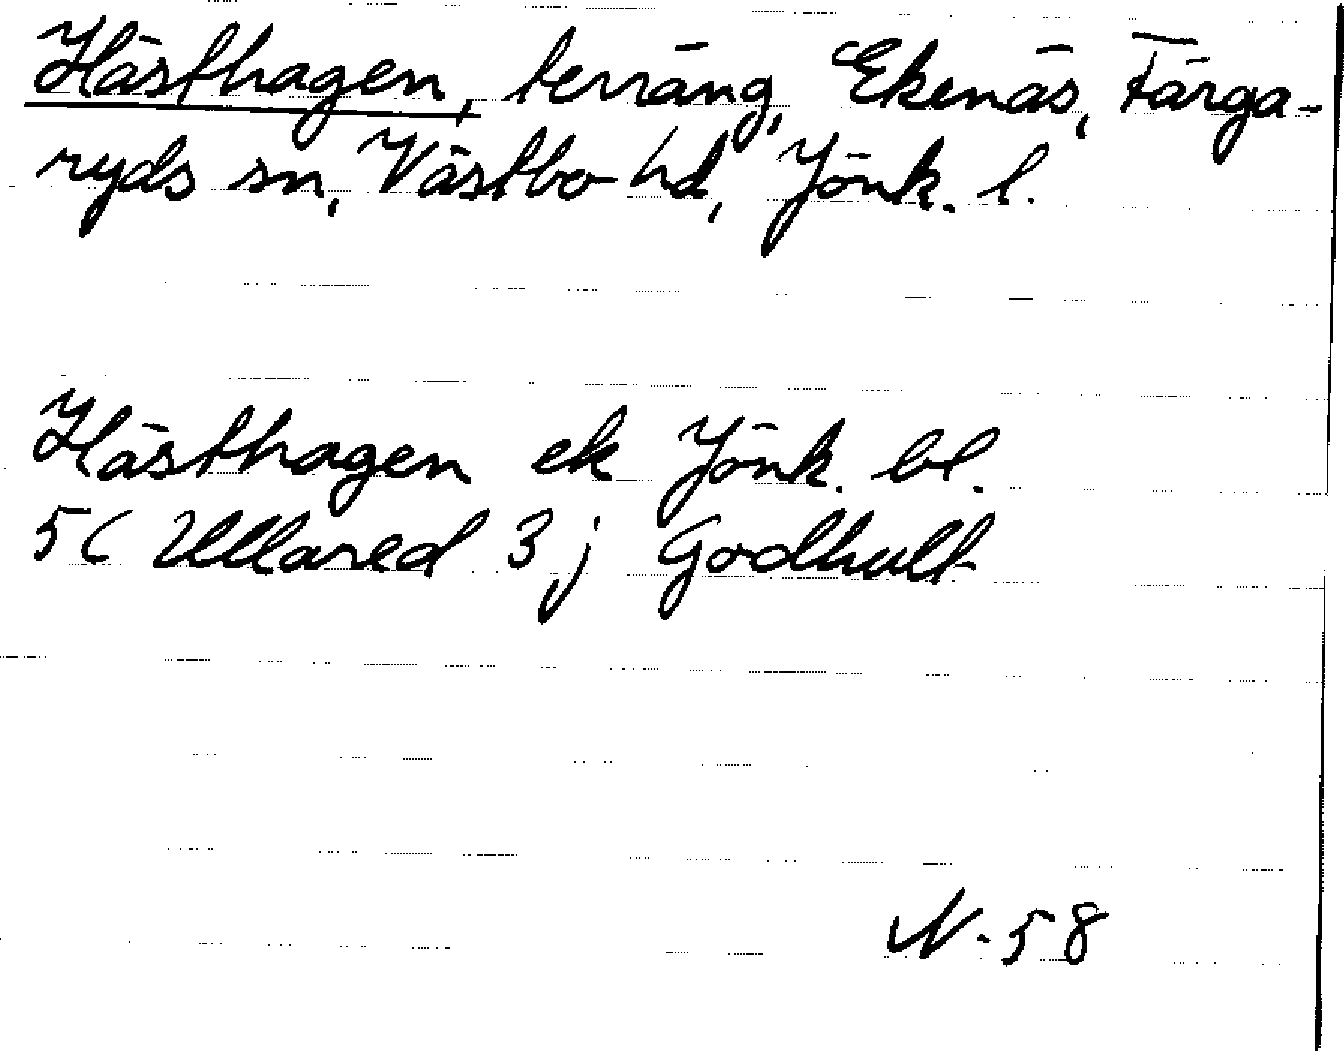 Hästhagen, terräng, Ekenäs, Färga-
ryds sn, Västbo hd, Jönk. l.
Hästhagen ek Jönk. bl.
5C Ullared 3j Godhult
N. 58